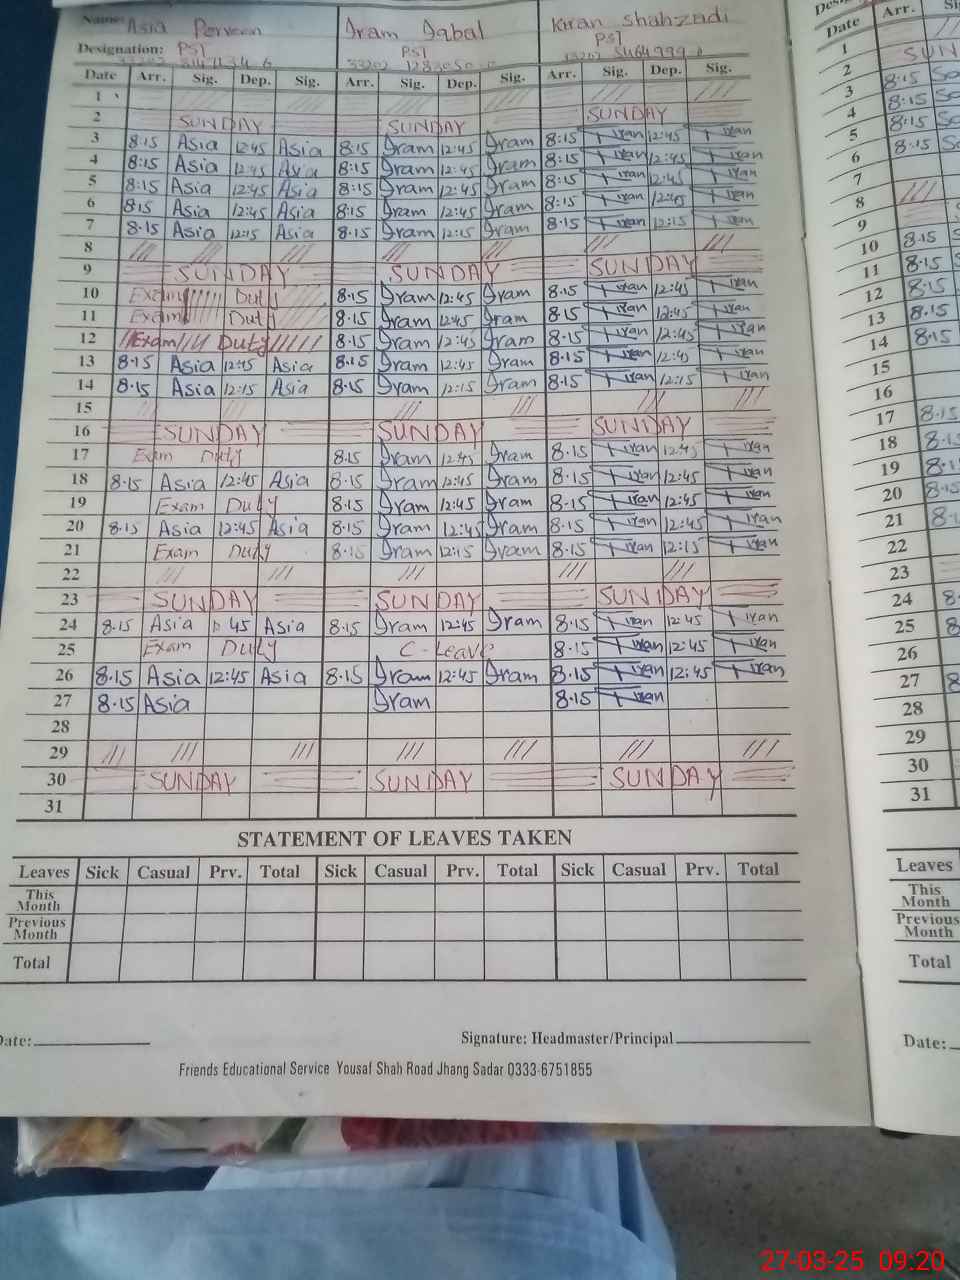 Name: Asia Perveen Iram Iqbal Kiran Shahzadi
Designation: PST PST PST
Date Arr. Sig. Dep. Sig. Arr. Sig. Dep. Sig. Arr. Sig. Dep. Sig.
1
2 SUNDAY SUNDAY SUNDAY
3 8·15 Asia 12:45 Asia 8·15 Iram 12:45 Iram 8:15 Kiran 12:45 Kiran
4 8:15 Asia 12:45 Asia 8:15 Iram 12:45 Iram 8·15 Kiran 12:45 Kiran
5 8·15 Asia 12:45 Asia 8:15 Iram 12:45 Iram 8·15 Kiran 12:45 Kiran
6 8:15 Asia 12:45 Asia 8:15 Iram 12:45 Iram 8:15 Kiran 12:45 Kiran
7 8·15 Asia 12:15 Asia 8·15 Iram 12:15 Iram 8·15 Kiran 12:15 Kiran
8
9 SUNDAY SUNDAY SUNDAY
10 Exam Duty 8·15 Iram 12:45 Iram 8·15 Kiran 12:45 Kiran
11 Exam Duty 8·15 Iram 12:45 Iram 8·15 Kiran 12:45 Kiran
12 Exam Duty 8:15 Iram 12:45 Iram 8·15 Kiran 12:45 Kiran
13 8·15 Asia 12:45 Asia 8·15 Iram 12:45 Iram 8·15 Kiran 12:45 Kiran
14 8·15 Asia 12:15 Asia 8·15 Iram 12:15 Iram 8·15 Kiran 12:15 Kiran
15
16 SUNDAY SUNDAY SUNDAY
17 Exam Duty 8·15 Iram 12:45 Iram 8·15 Kiran 12:45 Kiran
18 8·15 Asia 12:45 Asia 8·15 Iram 12:45 Iram 8·15 Kiran 12:45 Kiran
19 Exam Duty 8·15 Iram 12:45 Iram 8·15 Kiran 12:45 Kiran
20 8·15 Asia 12:45 Asia 8·15 Iram 12:45 Iram 8·15 Kiran 12:45 Kiran
21 Exam Duty 8·15 Iram 12:15 Iram 8·15 Kiran 12:15 Kiran
22
23 SUNDAY SUNDAY SUNDAY
24 8·15 Asia 12 45 Asia 8·15 Iram 12:45 Iram 8·15 Kiran 12:45 Kiran
25 Exam Duty C-Leave 8·15 Kiran 12:45 Kiran
26 8·15 Asia 12:45 Asia 8·15 Iram 12:45 Iram 8·15 Kiran 12:45 Kiran
27 8·15 Asia Iram 8·15 Kiran
28
29
30 SUNDAY SUNDAY SUNDAY
31
STATEMENT OF LEAVES TAKEN
Leaves Sick Casual Prv. Total Sick Casual Prv. Total Sick Casual Prv. Total
This Month
Previous Month
Total
Date: Signature: Headmaster/Principal
Friends Educational Service Yousaf Shah Road Jhang Sadar 0333-6751855
Date Arr.
1
2 8·15
3 8·15
4 8·15
5 8·15
6
7
8
9
10 8·15
11 8·15
12 8·15
13 8·15
14 8·15
15
16
17 8·15
18 8·15
19
20 8·15
21
22
23
24
25
26
27
28
29
30
31
Leaves
This Month
Previous Month
Total
Date:
27-03-25 09:20